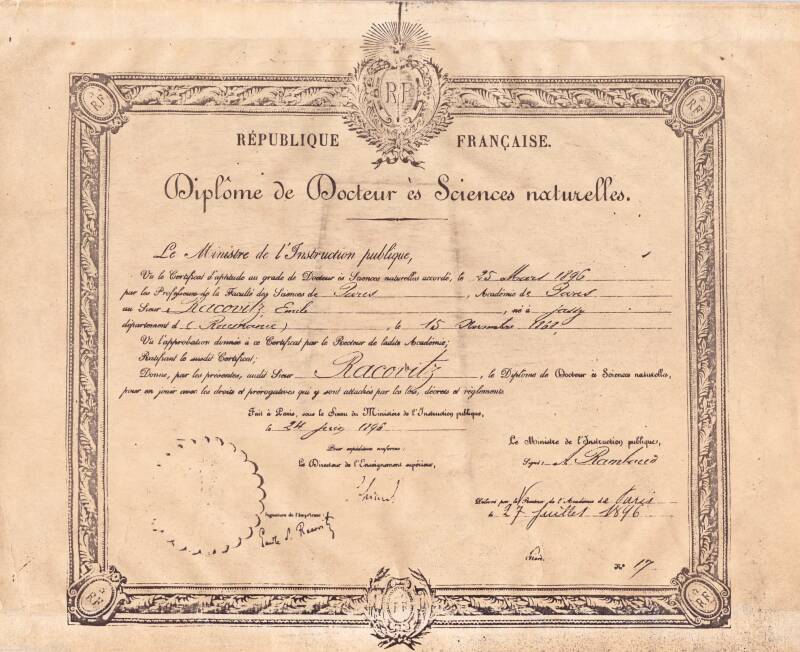 RF
RF
RF
RÉPUBLIQUE FRANÇAISE.
Diplôme de Docteur ès Sciences naturelles.
Le Ministre de l'Instruction publique,
Vu le Certificat d'aptitude au grade de Docteur ès Sciences naturelles accordé, le 25 Mars 1896
par les Professeurs de la Faculté des Sciences de Paris, Académie de Paris
au Sieur Racovitz Emile, né à Jassy
département d (Roumanie), le 15 Novembre 1868,
Vu l'approbation donnée à ce Certificat par le Recteur de ladite Académie;
Ratifiant le susdit Certificat;
Donne, par les présentes, audit Sieur Racovitz, le Diplôme de Docteur ès Sciences naturelles,
pour en jouir avec les droits et prérogatives qui y sont attachés par les lois, décrets et règlements.
Fait à Paris, sous le Sceau du Ministère de l'Instruction publique,
le 24 Juin 1896
Pour expédition conforme:
Le Directeur de l'Enseignement supérieur,
Le Ministre de l'Instruction publique,
Signé: A. Rambaud
Délivré par le Recteur de l'Académie de Paris
le 27 Juillet 1896
Signature de l'Impétrant:
Emile G. Racovitz
N° 17
RF
RF
RF